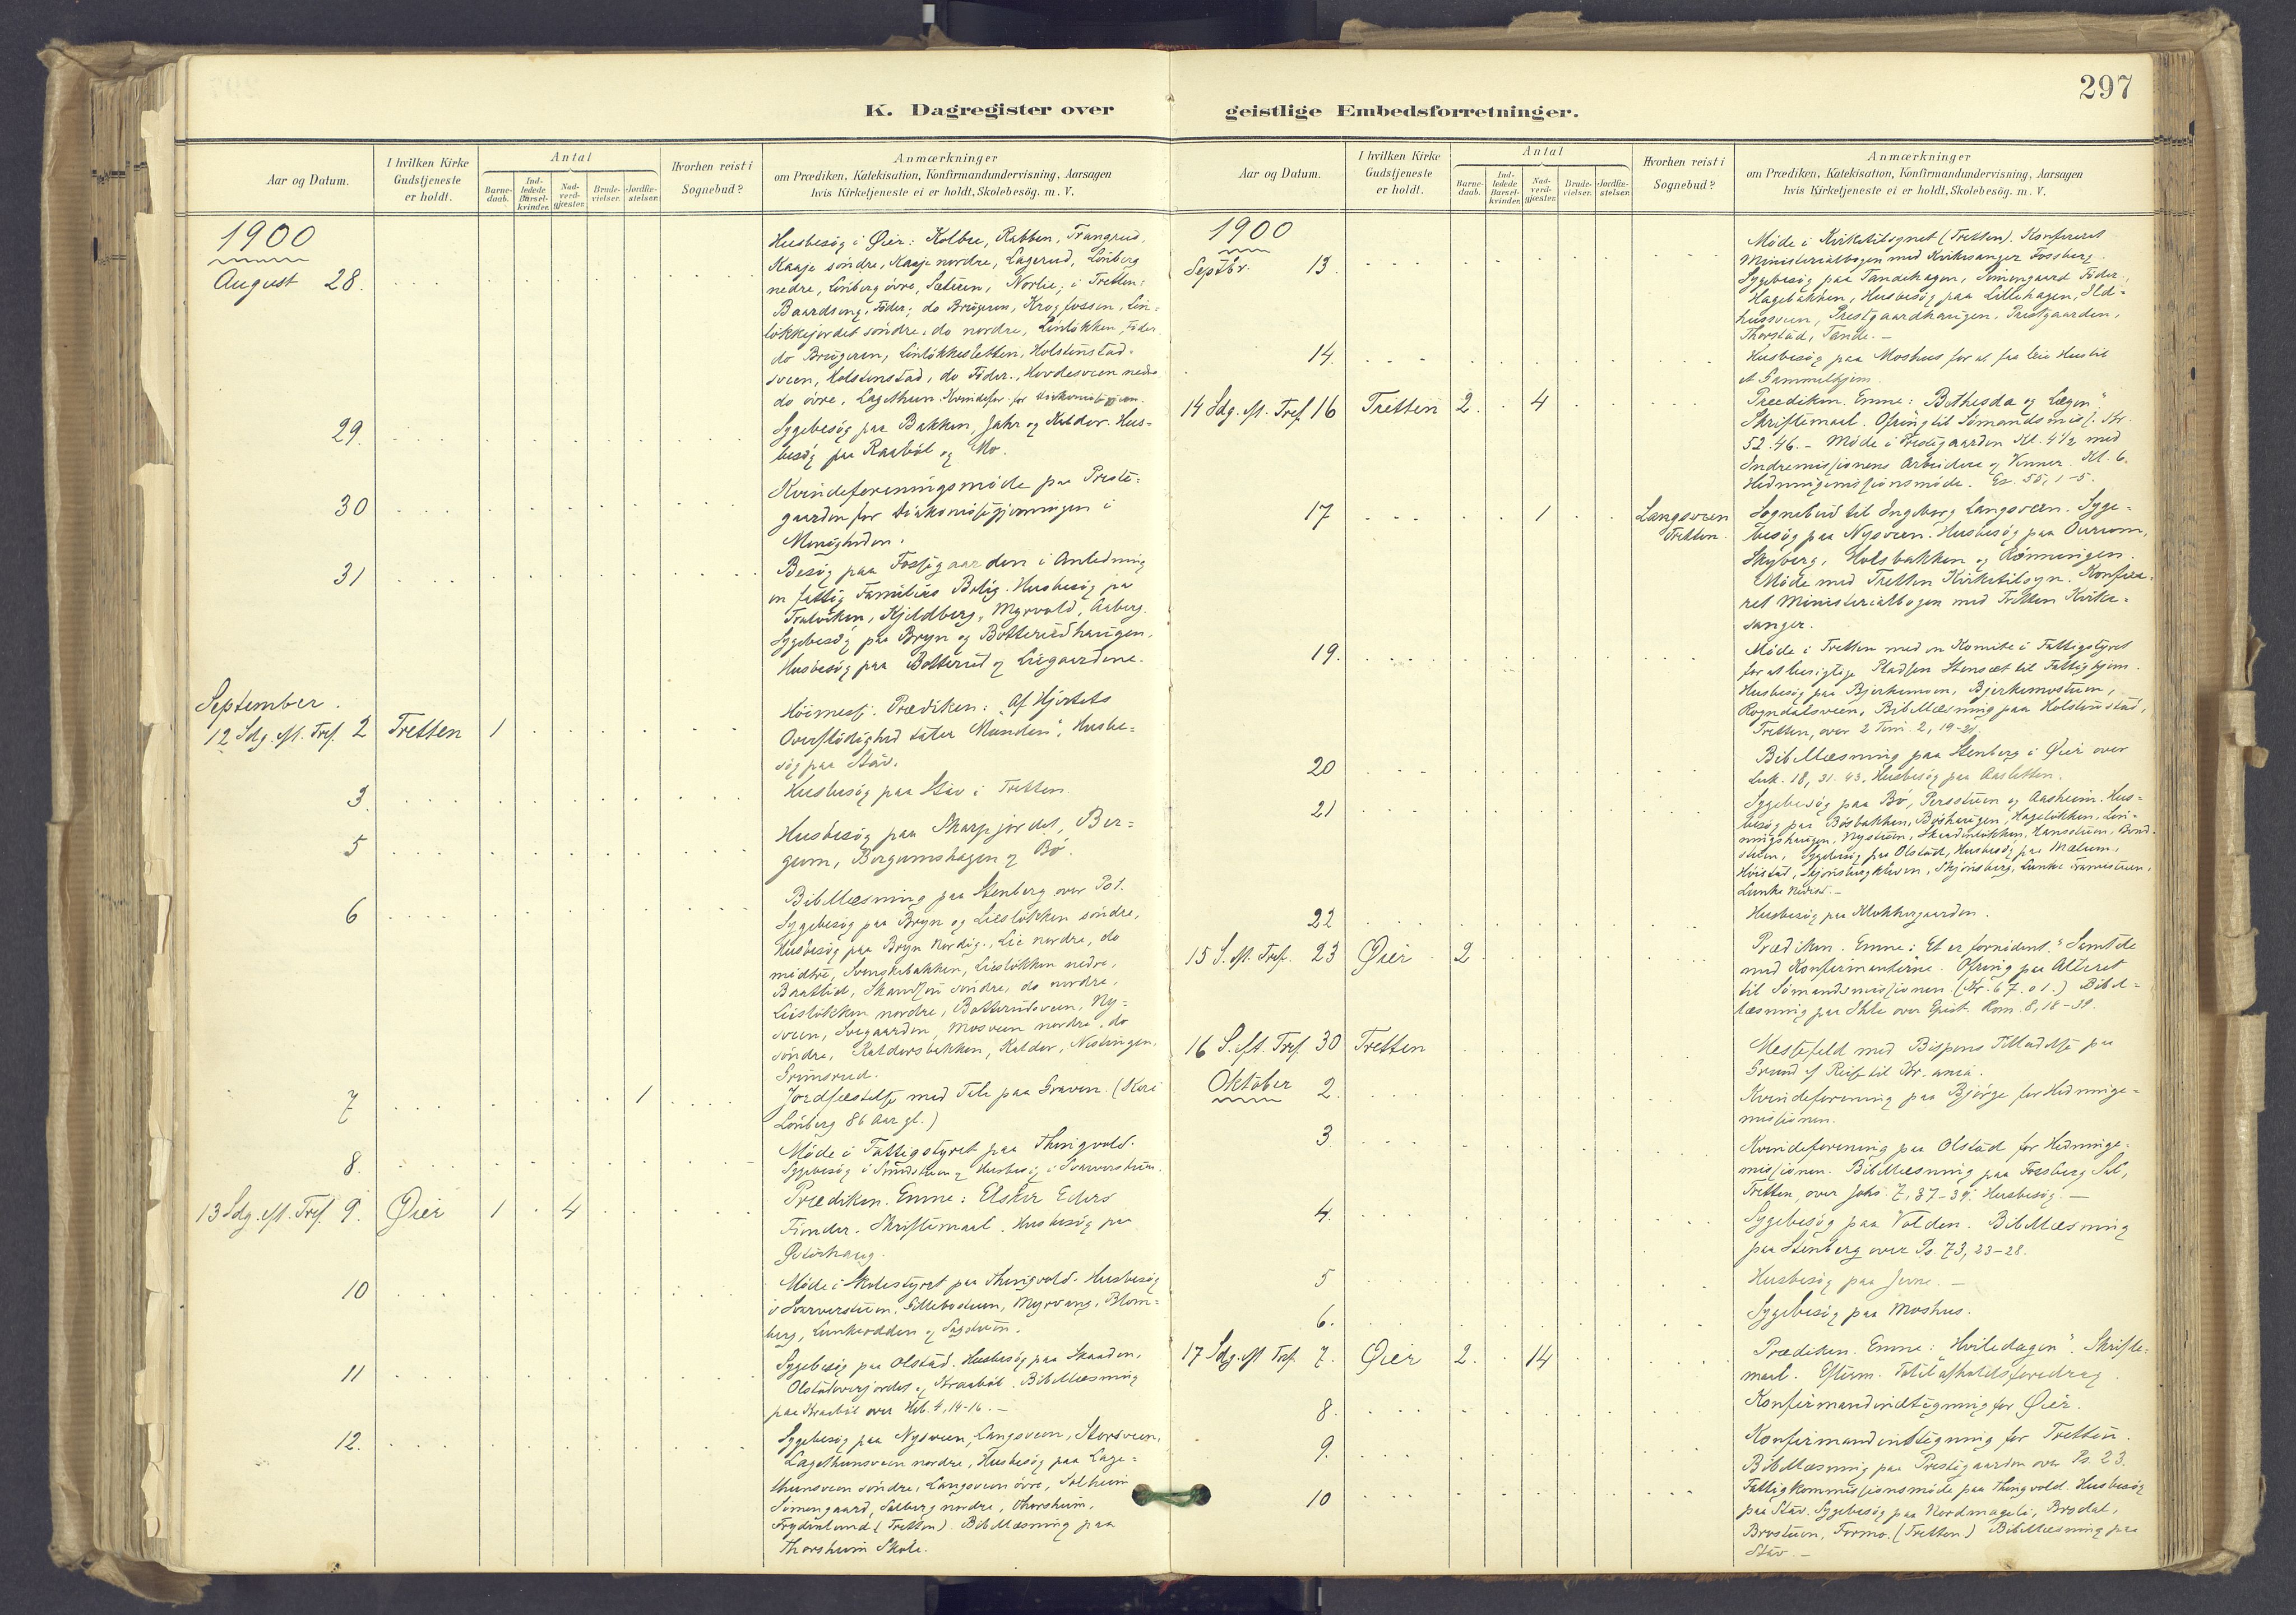 297
K. Dagregister over
geistlige Embedsforretninger.
Aar og Datum.
I hvilken Kirke
Gudstjeneste
er holdt.
Antal
Barne-
daab.
Ind-
ledede
Barsel-
kvinder.
Nad-
verd-
gjæster.
Brude-
vielser.
Jordfæ-
stelser.
Hvorhen reist i
Sognebud?
Anmærkninger
om Prædiken, Katekisation, Konfirmandundervisning, Aarsagen
hvis Kirketjeneste ei er holdt, Skolebesög. m. V.
1900
August 28.
Husbesög i Øier: Kolbu, Rabben, Trangrud,
Kaaje söndre, Kaaje nordre, Lagerud, Lönberg
nedre, Lönberg övre, Sæteren, Norlie; i Tretten:
Baardseng, Föder; do Brugeren, Krogfossen, Lin-
lökkejordet söndre, do nordre, Linlökken, Föder
do Brugeren, Linlökkesletten, Holstenstad-
sveen, Holstenstad, do Föder., Hovdesveen nedre
do övre, Lagethun. Kvindefor. for
29.
Sygebesög paa Bakken, Jahr og Kalder. Hus-
besög paa Raaböl og Mo.
30
Kvindeforeningsmöde paa Preste-
gaarden for Diakonissegjerningen i
Menigheden.
31
Besög paa Fossegaarden i Anledning
en fattig Families Bolig. Husbesög paa
Kjeldberg, Myrvold, Aaberg.
Sygebesög paa Bryn og Botterudhaugen.
Husbesög paa Botterud og Liegaardene.
September.
12 Sdg. eft. Tref. 2 Tretten 1
Höimesse. Prædiken: "Af Hjertets
Overflödighed taler Munden". Husbe-
sög paa Stav.
3.
Husbesög paa Stav i Tretten.
5
Husbesög paa Skarpjordet, Ber-
gum, Bergumshagen og Bö.
6
Bibellæsning paa Stenberg over Ps 1.
Sygebesög paa Bryn og Lieslökken söndre,
Husbesög paa Bryn Nordig., Lie nordre, do
midtre, Svenskebakken, Lieslökken nedre,
Baatlid, söndre, do nordre,
Lieslökken nordre, Botterudsveen, Ny-
sveen, Svegaarden, Mosveen nordre, do
söndre, Kaldorsbakken, Kaldor, Nistingen,
Grimsrud.
7 1
Jordfæstelse med Tale paa Graven. (Kari
Lönberg 86 Aar gl.)
8.
Möde i Fattigstyret paa Thingvold.
Sygebesög i Sundstuen og Husbesög i Svarverstuen.
13 Sdg. eft. Tref. 9. Øier 1 4
Prædiken. Emne: Elsker Eders
Fiender. Skriftemaal. Husbesög paa
10
Möde i Skolestyret paa Thingvold. Husbesög
i Svarverstuen, Myrvang, Blom-
berg, Lunkeodden og Sagstuen.
11
Sygebesög paa Olstad. Husbesög paa Skaaden,
og Kraaböl. Bibellæsning
paa Kraaböl over Heb. 4, 14-16. -
12.
Sygebesög paa Nysveen, Langsveen, Storsveen,
Lagethunsveen nordre, Husbesög paa Lage-
thunsveen söndre, Langsveen övre, Solheim
Simengaard, Solberg nordre, Thorsheim,
Frydenlund (Tretten). Bibellæsning paa
Thorsheim Skole.
Aar og Datum.
I hvilken Kirke
Gudstjeneste
er holdt.
Antal
Barne-
daab.
Ind-
ledede
Barsel-
kvinder.
Nad-
verd-
gjæster.
Brude-
vielser.
Jordfæ-
stelser.
Hvorhen reist i
Sognebud?
Anmærkninger
om Prædiken, Katekisation, Konfirmandundervisning, Aarsagen
hvis Kirketjeneste ei er holdt, Skolebesög. m. V.
1900
Septbr. 13.
Möde i Kirketilsynet (Tretten). Konfereret
Ministerialbogen med Kirkesanger Fossberg.
Sygebesög paa Tandehagen, Simengaard Föder.,
Hagebakken, Husbesög paa Lillehagen, Ild-
hussveen, Prestgaardhaugen, Prestgaarden,
Thorstad, Tande. -
14.
Husbesög paa Moshus for at faa leie Hus til
et Gammelhjem.
14 Sdg. eft. Tref. 16 Tretten 2. 4
Prædiken. Emne: Bethesda og Lægen"
Skriftemaal. Ofring til Sömandsmiss. Kr.
52.46. - Möde i Prestegaarden Kl. 4 1/2 med
Indremissionens Arbeidere og Venner. Kl. 6.
Hedningemissionsmöde. Es. 55, 1-5.
17 1 Langsveen
Tretten.
Sognebud til Ingeborg Langsveen. Syge-
besög paa Nysveen. Husbesög paa
Skyberg, Holsbakken og Rönningen.
Möde med Tretten Kirketilsyn. Konfere-
ret Ministerialbogen med Tretten Kirke-
sanger.
19.
Möde i Tretten med en Komite i Fattigstyret
for at besigtige Pladsen Stensæt til Fattighjem.
Husbesög paa Bjerkemoen, Bjerkemostuen,
Rogndalsveen, Bibellæsning paa Holstenstad,
Tretten, over 2 Tim. 2, 19-21.
20
Bibellæsning paa Stenberg i Øier over
Luk. 18, 31-43. Husbesög paa Aasletten.
21
Sygebesög paa Bö, Persstuen og Aasheim. Hus-
besög paa Bösbakken, Böshaugen, Hagelökken, Lin-
Nystuen, Skaadenlökken, Hansstuen,
Sygebesög paa Olstad, Husbesög paa Mælum,
Höistad, Skjönsberg, Lunke
Lunke nedre. -
22
Husbesög paa Klokkergaarden.
15 S. eft. Tref. 23 Øier 2
Prædiken. Emne: Et er fornödent." Samtale
med Konfirmanterne. Ofring paa Alteret
til Sömandsmissionen. (Kr. 67.01.) Bibel-
læsning paa Ihle over Epist. Rom. 8, 18-39.
16 S. eft. Tref. 30 Tretten
Messefald med Bispens Tilladelse paa
Grund af Reise til Kr.ania.
Oktober 2.
Kvindeforening paa Bjørge for Hedninge-
missionen.
3.
Kvindeforening paa Olstad for Hedninge-
missionen. Bibellæsning paa Fossberg Sal,
Tretten, over Johs. 7, 37-39. Husbesög. -
4.
Sygebesög paa Volden. Bibellæsning
paa Stenberg over Ps. 73, 23-28.
5
Husbesög paa Jevne. -
6.
Sygebesög paa Moshus.
17 Sdg. eft Tref. 7. Øier 2. 14
Prædiken. Emne: Hviledagen". Skrifte-
maal. Efterm. Totalafholdsforedrag.
8.
Konfirmandindtegning for Øier.
9.
Konfirmandindtegning for Tretten.
Bibellæsning paa Prestegaarden over Ps. 23.
10
Fattigkommissionsmöde paa Thingvold. Husbesög
paa Stav. Sygebesög paa Nordmageli,
Formo. (Tretten) Bibellæsning paa
Stav. -